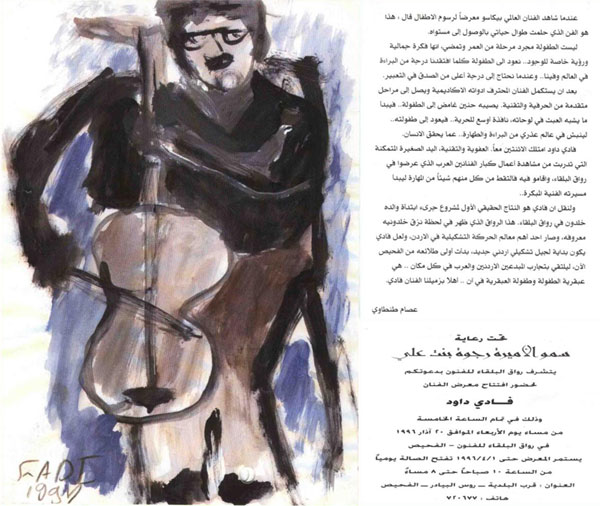 عندما شاهد الفنان العالمي بيكاسو معرضاً لرسوم الاطفال قال : هذا
هو الفن الذي حلمت طوال حياتي بالوصول إلى مستواه.
ليست الطفولة مجرد مرحلة من العمر وتمضي، انها فكرة جمالية
ورؤية خاصة للوجود.. نعود الى الطفولة كلما افتقدنا درجة من البراءة
في العالم وفينا.. وعندما نحتاج إلى درجة أعلى من الصدق في التعبير.
بعد ان يستكمل الفنان المحترف ادواته الاكاديمية ويصل إلى مراحل
متقدمة من الحرفية والتقنية، يصيبه حنين غامض إلى الطفولة.. فيبدأ
ما يشبه العبث في لوحاته، نافذة اوسع للحرية.. فيعود إلى طفولته..
لينبش في عالم عذري من البراءة والطهارة.. عما يحقق الانسان.
فادي داود امتلك الاثنتين معاً، العفوية والتقنية، اليد الصغيرة المتمكنة
التي تدربت من مشاهدة أعمال كبار الفنانين العرب الذي عرضوا في
رواق البلقاء، واقاموا فيه فالتقط من كل منهم شيئاً من المهارة ليبدأ
مسيرته الفنية المبكرة..
ولنقل ان فادي هو النتاج الحقيقي الأول لمشروع جريء ابتدأه والده
خلدون في رواق البلقاء، هذا الرواق الذي ظهر في لحظة نزق خلدونيه
معروفه، وصار احد اهم معالم الحركة التشكيلية في الاردن، ولعل فادي
يكون بداية لجيل تشكيلي اردني جديد، بدأت أولى طلائعه من الفحيص
الآن، ليلتقي بتجارب المبدعين الاردنيين والعرب في كل مكان .. هي
عبقرية الطفولة وطفولة العبقرية في آن .. أهلاً بزميلنا الفنان فادي.
عصام طنطاوي
تحت رعاية
سمو الأميرة رجوة بنت علي
يتشرف رواق البلقاء للفنون بدعوتكم
لحضور افتتاح معرض الفنان
فادي داود
وذلك في تمام الساعة الخامسة
من مساء يوم الأربعاء الموافق ٢٠ آذار ١٩٩٦
في رواق البلقاء للفنون - الفحيص
يستمر المعرض حتى ١٩٩٦/٤/١ تفتح الصالة يومياً
من الساعة ١٠ صباحاً حتى ٨ مساءً
العنوان : قرب البلدية - روس البيادر - الفحيص
هاتف : ٧٢٠٦٧٧
FADI